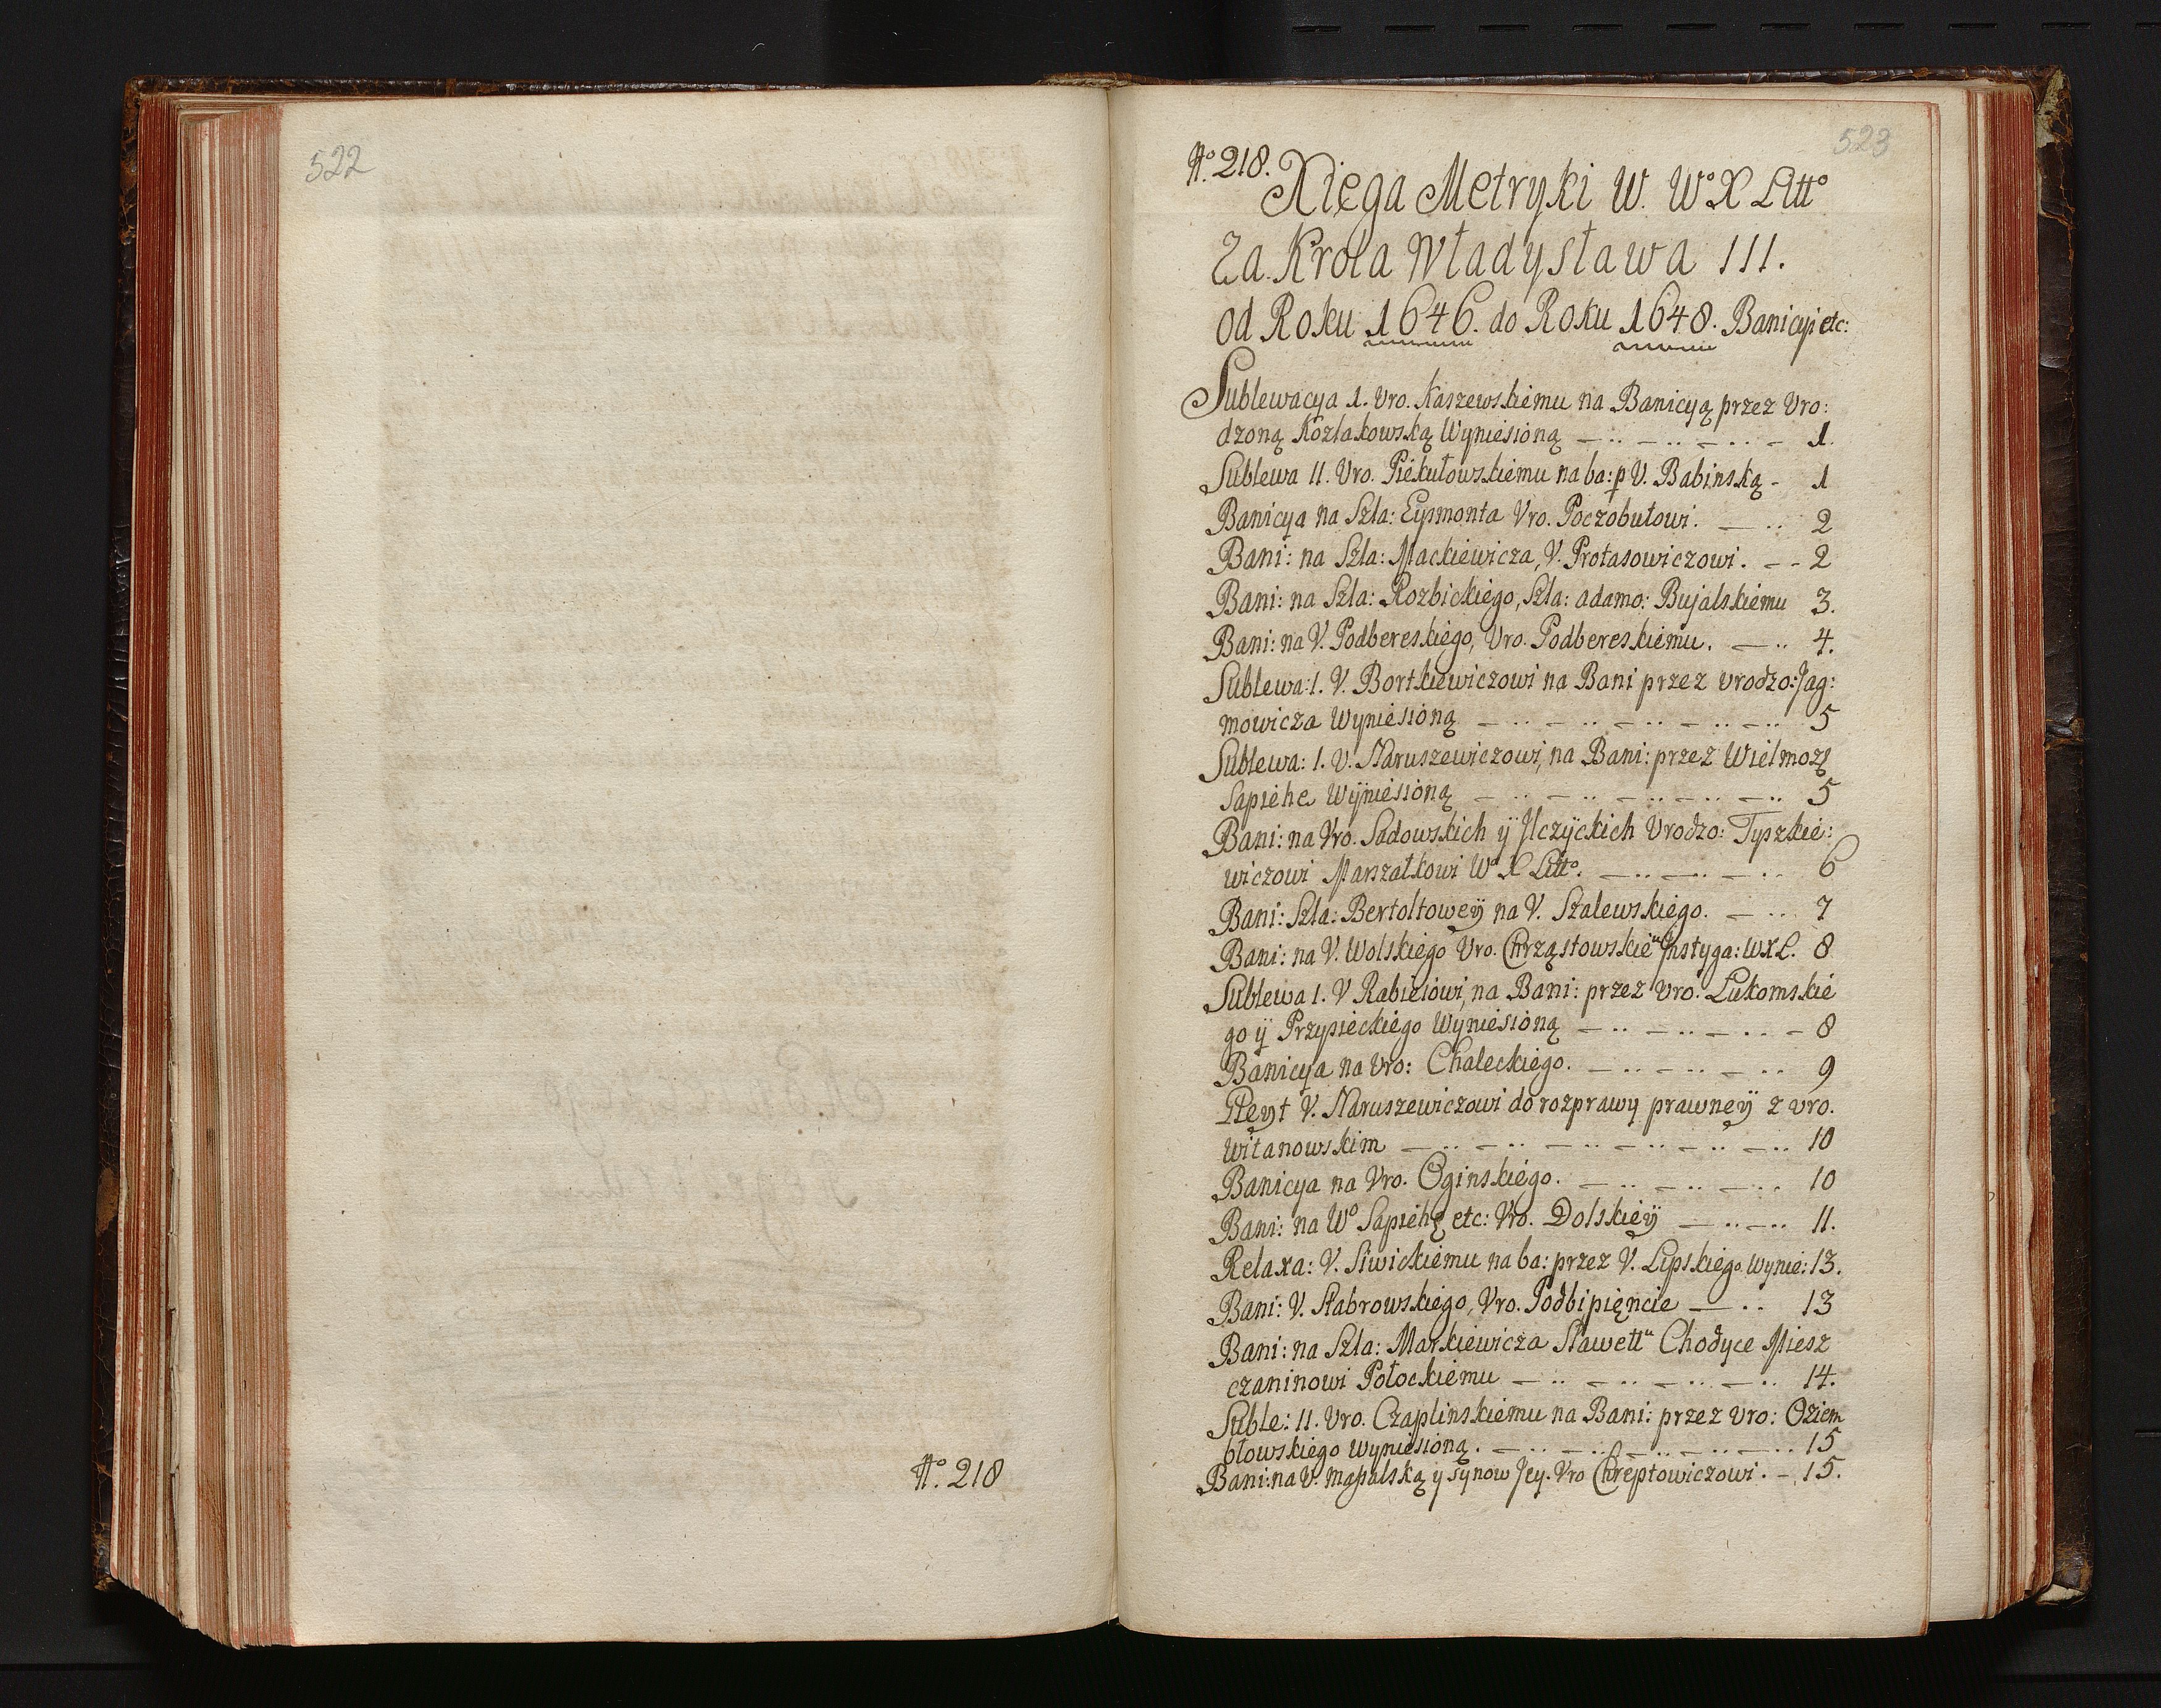 522
No. 218
523
No. 218.
Xięga Metryki W. Wo X Litto
Za Krola Władysława III.
od Roku 1646. do Roku 1648. Banicyi etc:
Sublewacya 1. Uro. Kaszewskiemu na Banicyą przez Uro:
dzoną Kozłakowską Wyniesioną — .. — .. — .. — 1.
Sublewa II. Uro. Piekutowskiemu na ba: p V. Babinską - 1
Banicya na Szla: Eysmonta Uro. Poczobutowi. — .. 2
Bani: na Szla: Mackiewicza, V. Protasowiczowi. — - 2
Bani: na Szla: Rozbickiego, Szla: adamo: Bujalskiemu 3.
Bani: na V. Podbereskiego, Uro. Podbereskiemu. — .. 4.
Sublewa: 1. V. Bortkiewiczowi na Bani przez urodzo: Jag:
mowicza Wyniesioną — .. — .. — .. — .. — .. 5
Sublewa: 1. V. Naruszewiczowi, na Bani: przez Wielmoż
Sapiehe Wyniesioną — .. — .. — .. — .. — .. 5
Bani: na Uro. Sadowskich ÿ Ilczyckich Urodzo: Tyszkie:
wiczowi Marszałkowi Wo X Litto. — .. — .. — .. 6
Bani: Szla: Bertoltoweÿ na V. Szalewskiego. — .. 7
Bani: na V. Wolskiego Uro. Chrząstowskieu Instyga: WXL. 8
Sublewa 1. V Rabieiowi, na Bani: przez Uro. Łukomskie
go ÿ Przysieckiego Wyniesioną — .. — .. — .. — 8
Banicya na Uro: Chaleckiego. — .. — .. — .. 9
Gleyt V. Naruszewiczowi do rozprawy prawneÿ z uro.
Witanowskim — .. — .. — .. — .. — .. — .. 10
Banicya na Uro. Oginskiego. — .. — .. — .. 10
Bani: na Wo Sapiehę etc: Uro. Dolskieÿ — .. — .. 11.
Relaxa: V. Siwickiemu na ba: przez V. Lipskiego Wynie: 13.
Bani: V. Stabrowskiego, Uro. Podbipięncie — .. 13
Bani: na Szla: Markiewicza Sławettu Chodyce Miesz
czaninowi Połockiemu — .. — .. — .. — .. 14.
Suble: II. Uro. Czaplinskiemu na Bani: przez Uro: Oziem
błowskiego wyniesioną. — .. — .. — .. — .. — .. 15
Bani: na V. y synow Jey. Uro Chreptowiczowi. - 15.